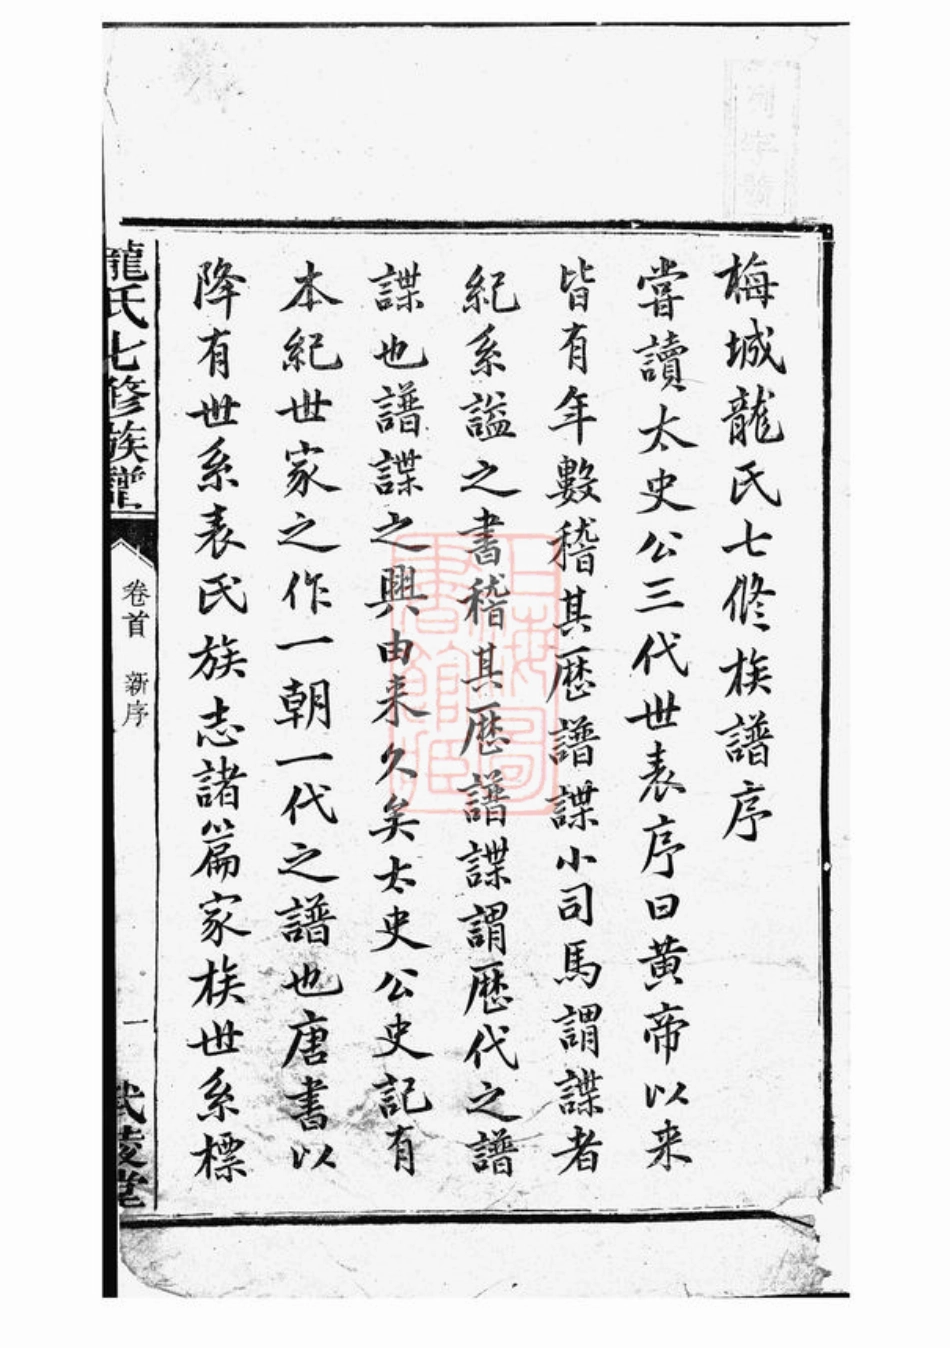 梅城龍氏七修族譜序
嘗讀太史公三代世表序曰黄帝以来
皆有年數稽其歴譜諜小司馬謂諜者
紀系謚之書稽其歴譜諜謂歴代之譜
諜也譜諜之興由来久矣太史公史記有
本紀世家之作一朝一代之譜也唐書以
降有世系表氏族志諸篇家族世系標
龍氏七修族譜
卷首 新序
一
武陵堂
上海圖書館藏